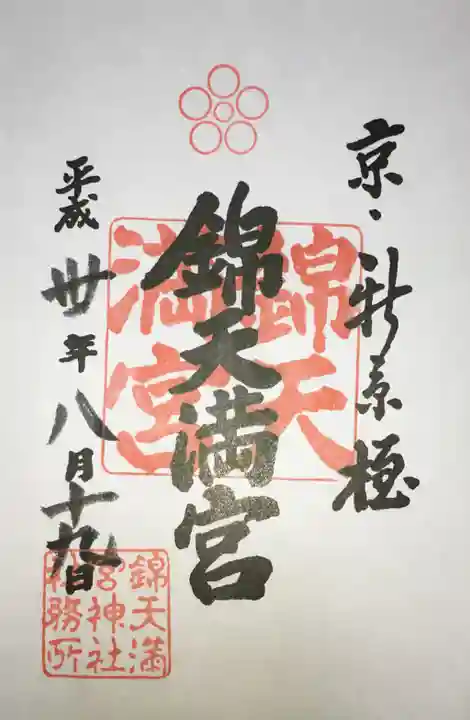 京・新京極
錦天満宮
錦天
満宮
平成丗年八月十九日
錦天満
宮神社
社務所